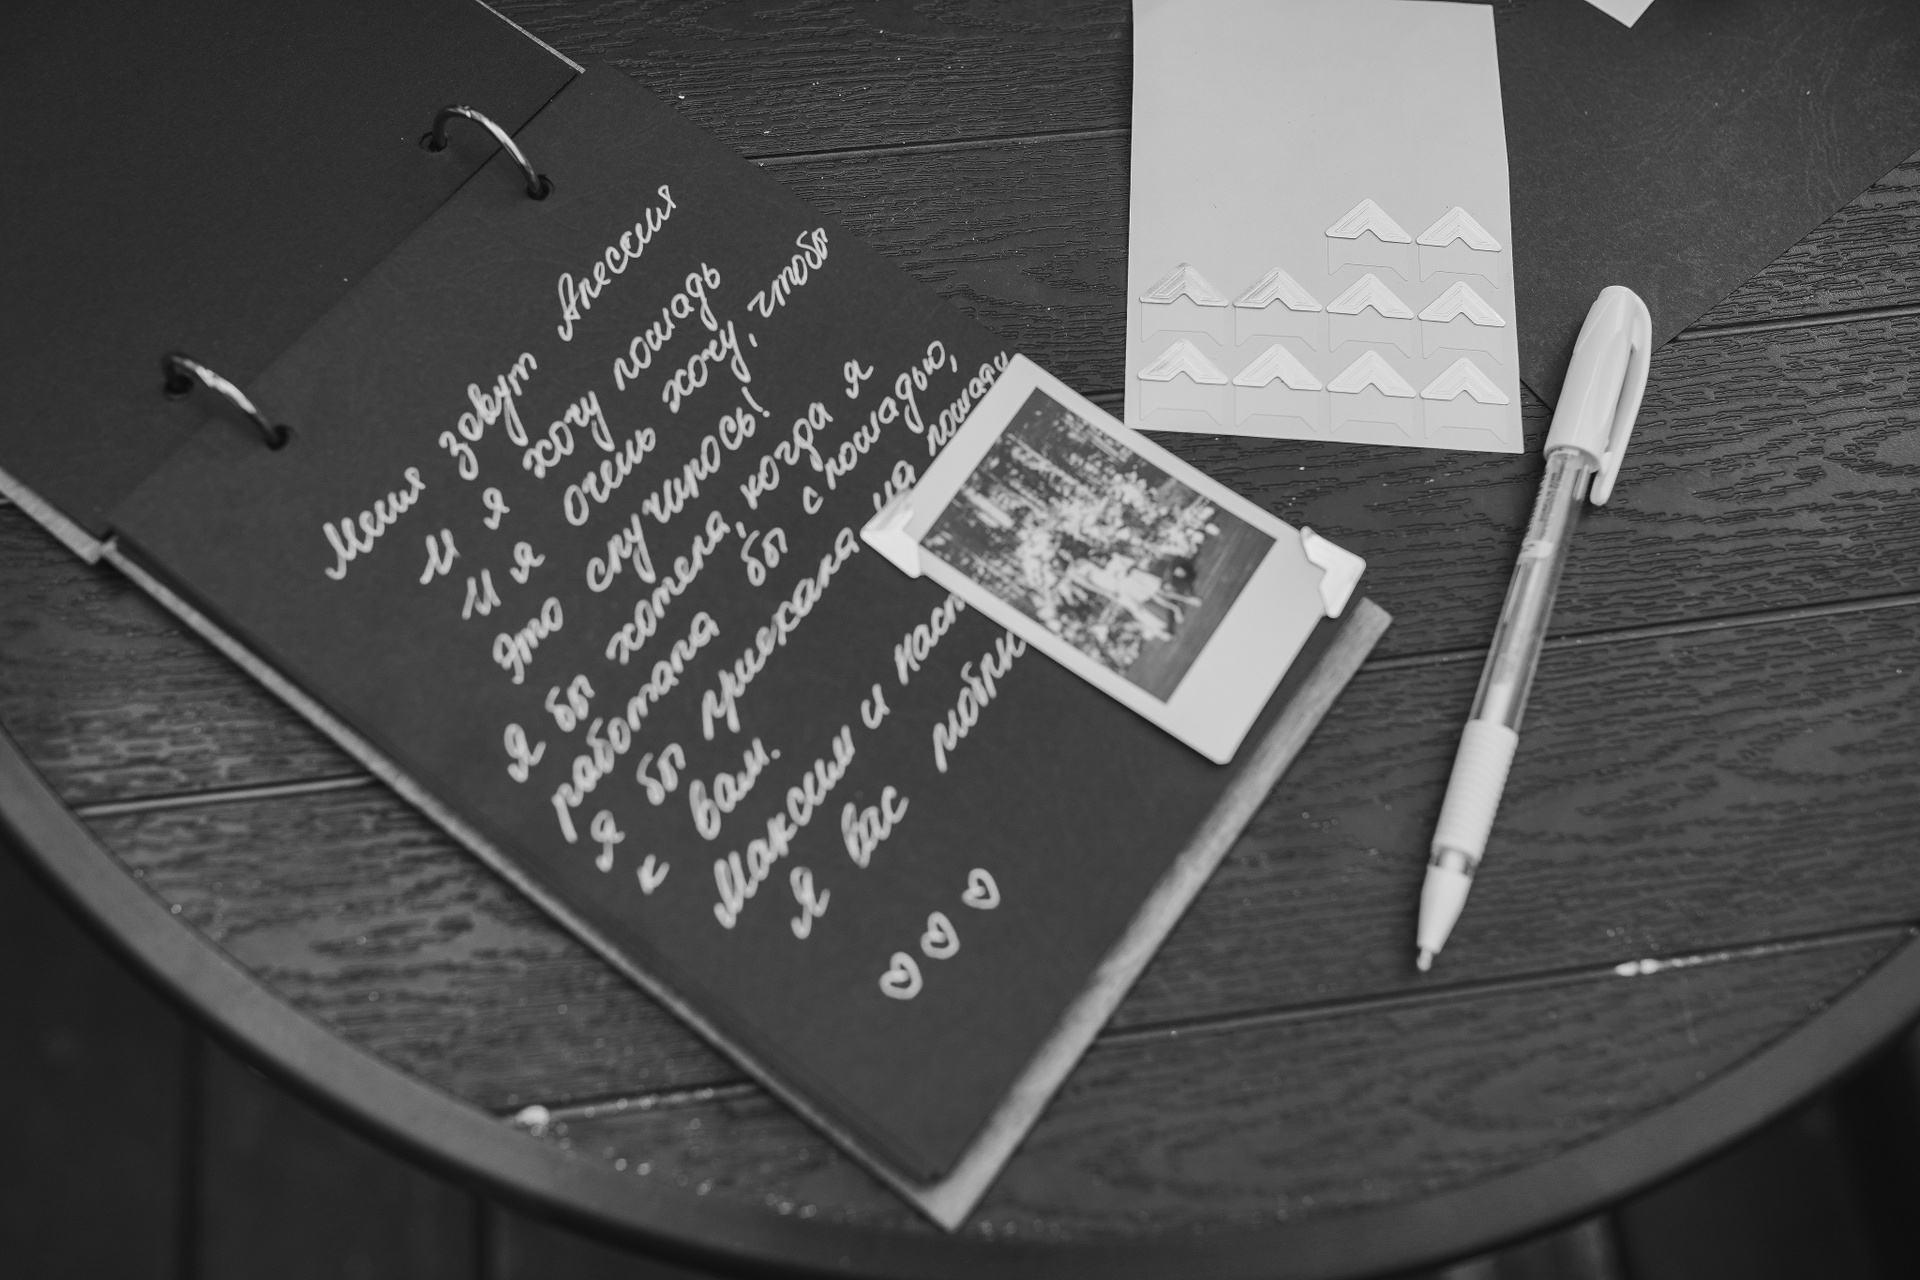 Меня зовут Алессия
И я хочу лошадь
И я очень хочу, чтобы
это случилось!
Я бы хотела, когда я
работала бы с лошадью,
Я бы приехала на лошади
к вам.
Максим и Наст
Я вас люблю